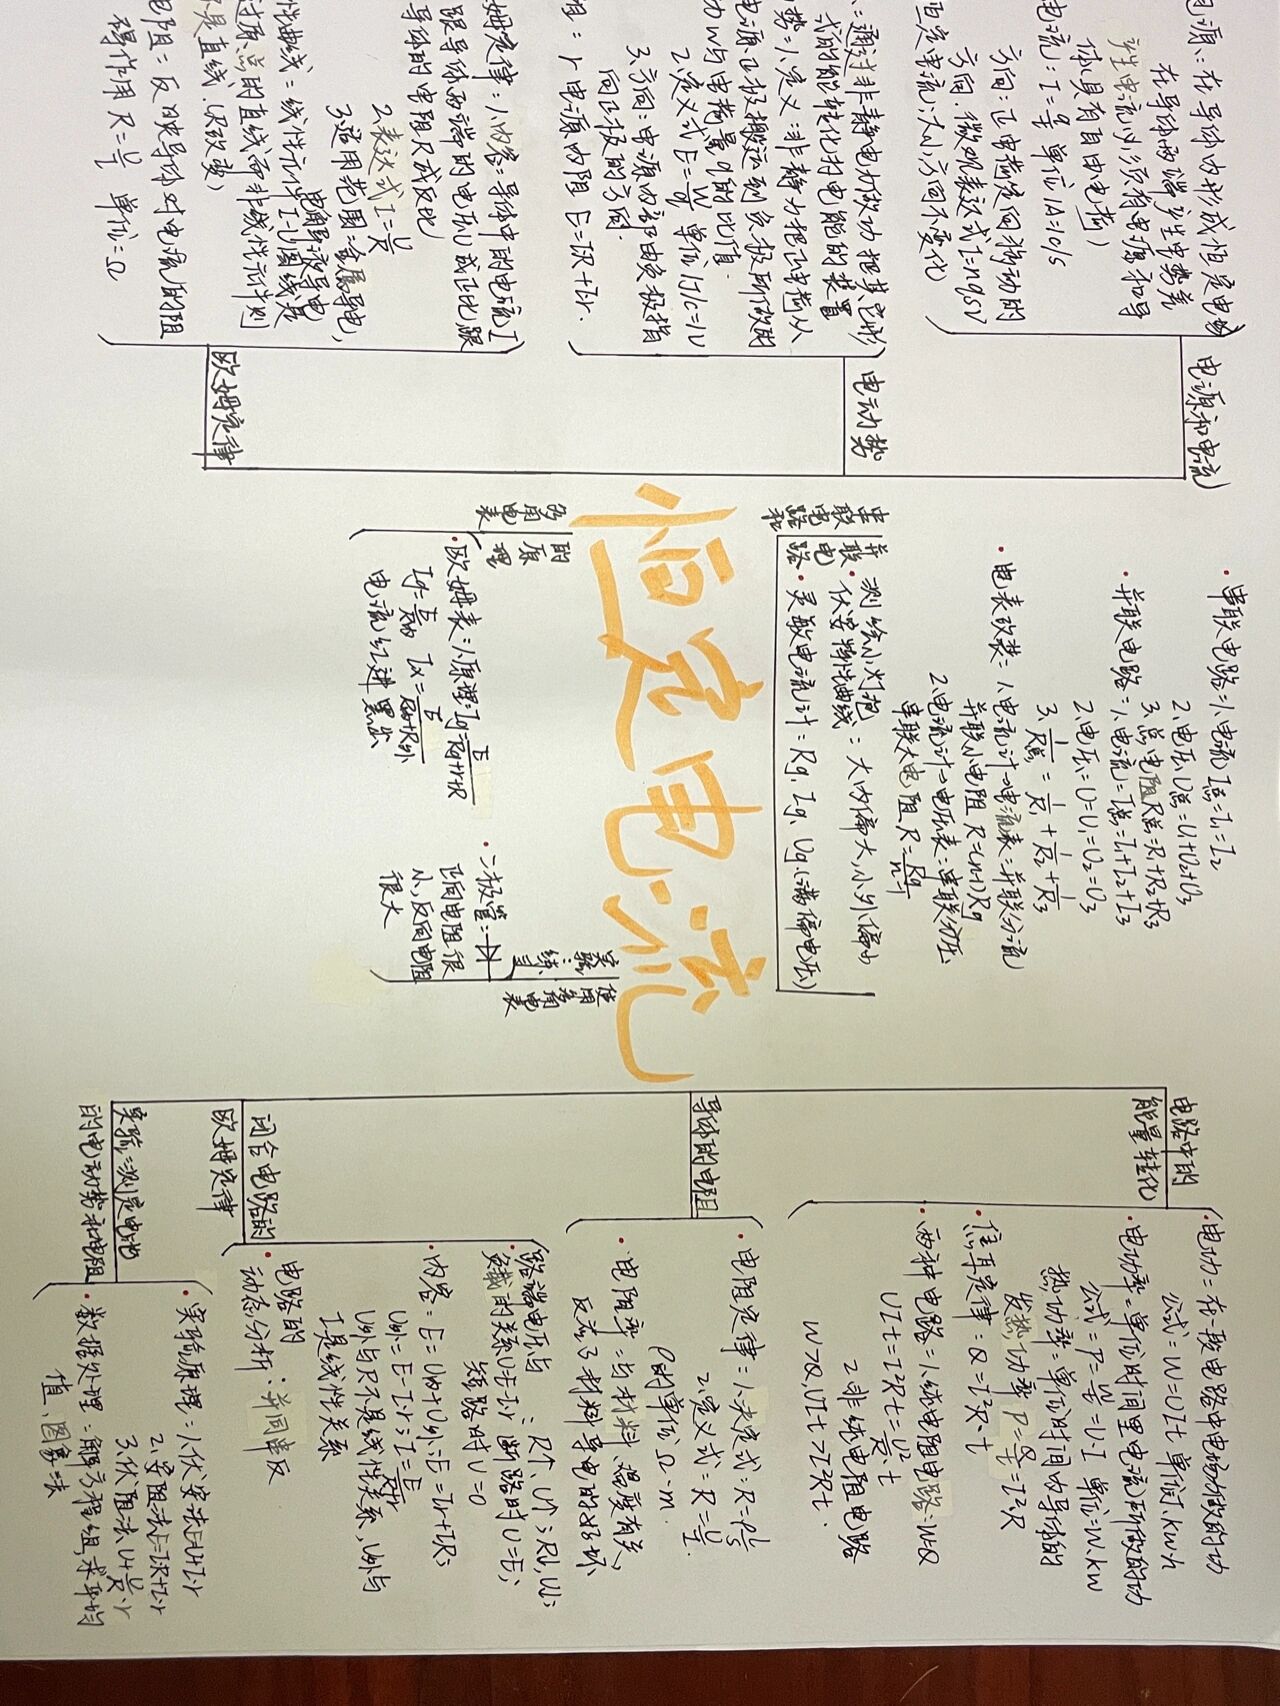 恒定电流
电源和电流
电源：在导体内形成恒定电场
在导体两端产生电势差
产生电流必须有电源和导
体(具有自由电荷)
电流：I=q/t 单位1A=1C/s
方向：正电荷定向移动的
方向.微观表达式I=nqSv
恒定电流：大小,方向不变化
电动势
：通过非静电力做功把其它形
式的能转化为电能的装置
势：1.定义：非静电力把正电荷从
电源正极搬运到负极所做的
功W与电荷量q的比值.
2.定义式E=W/q 单位1J/C=1V
3.方向：电源内部由负极指
向正极的方向.
阻：1.电源内阻 E=IR+Ir.
欧姆定律
欧姆定律：1.内容：导体中的电流I
跟导体两端的电压U成正比跟
导体的电阻R成反比
2.表达式I=U/R
3.适用范围：金属导电,
电解液导电
性曲线：线性元件I-U图线是
过原点的直线而非线性元件则
不是直线.(R改变)
电阻：反映导体对电流的阻
碍作用 R=U/I 单位：Ω
串联电路和
并联电路
·串联电路：1.电流I总=I1=I2
2.电压U总=U1+U2+U3
3.总电阻R总=R1+R2+R3
·并联电路：1.电流：I总=I1+I2+I3
2.电压：U=U1=U2=U3
3.1/R总=1/R1+1/R2+1/R3
·电表改装：1.电流计→电流表：并联分流
并联小电阻 R=(n-1)Rg
2.电流计→电压表：串联分压
串联大电阻 R=Rg/n-1
测绘小灯泡
·伏安特性曲线：大内偏大,小外偏小
·灵敏电流计：Rg、Ig、Ug(满偏电压)
多用电表
的原理
·欧姆表：1.原理：Ig=E/Rg+r+R
电流红进黑出
实验：练习
使用多用电表
·二极管：
正向电阻很
小,反向电阻
很大
电路中的
能量转化
·电功：在一段电路中电场力做的功
公式：W=UIt 单位J.kw·h
·电功率：单位时间里电流所做的功
公式：P=W/t=UI 单位：W.kW
热功率：单位时间内导体的
发热功率 P=Q/t=I²R
·焦耳定律：Q=I²R·t
·两种电路：1.纯电阻电路：W=Q
UIt=I²Rt=U²/R·t
2.非纯电阻电路
W>Q.UIt>I²Rt.
导体的电阻
·电阻定律：1.决定式：R=ρL/S
2.定义式：R=U/I
ρ的单位Ω·m.
·电阻率：与材料、温度有关,
反应了材料导电的好坏
闭合电路的
欧姆定律
路端电压与
·负载的关系：R↑,U↑；R↓,U↓；
U=E-Ir 断路时U=E；
短路时U=0
·内容：E=U内+U外=Ir+IR；
U外=E-Ir；I=E/R+r
U外与R不是线性关系,U外与
I是线性关系
·电路的
动态分析：并同串反
实验：测定电池
的电动势和电阻
·实验原理：1.伏安法E=U+Ir
2.安阻法E=IR+Ir
3.伏阻法U+U/R·r
·数据处理：解方程组求平均
值、图象法